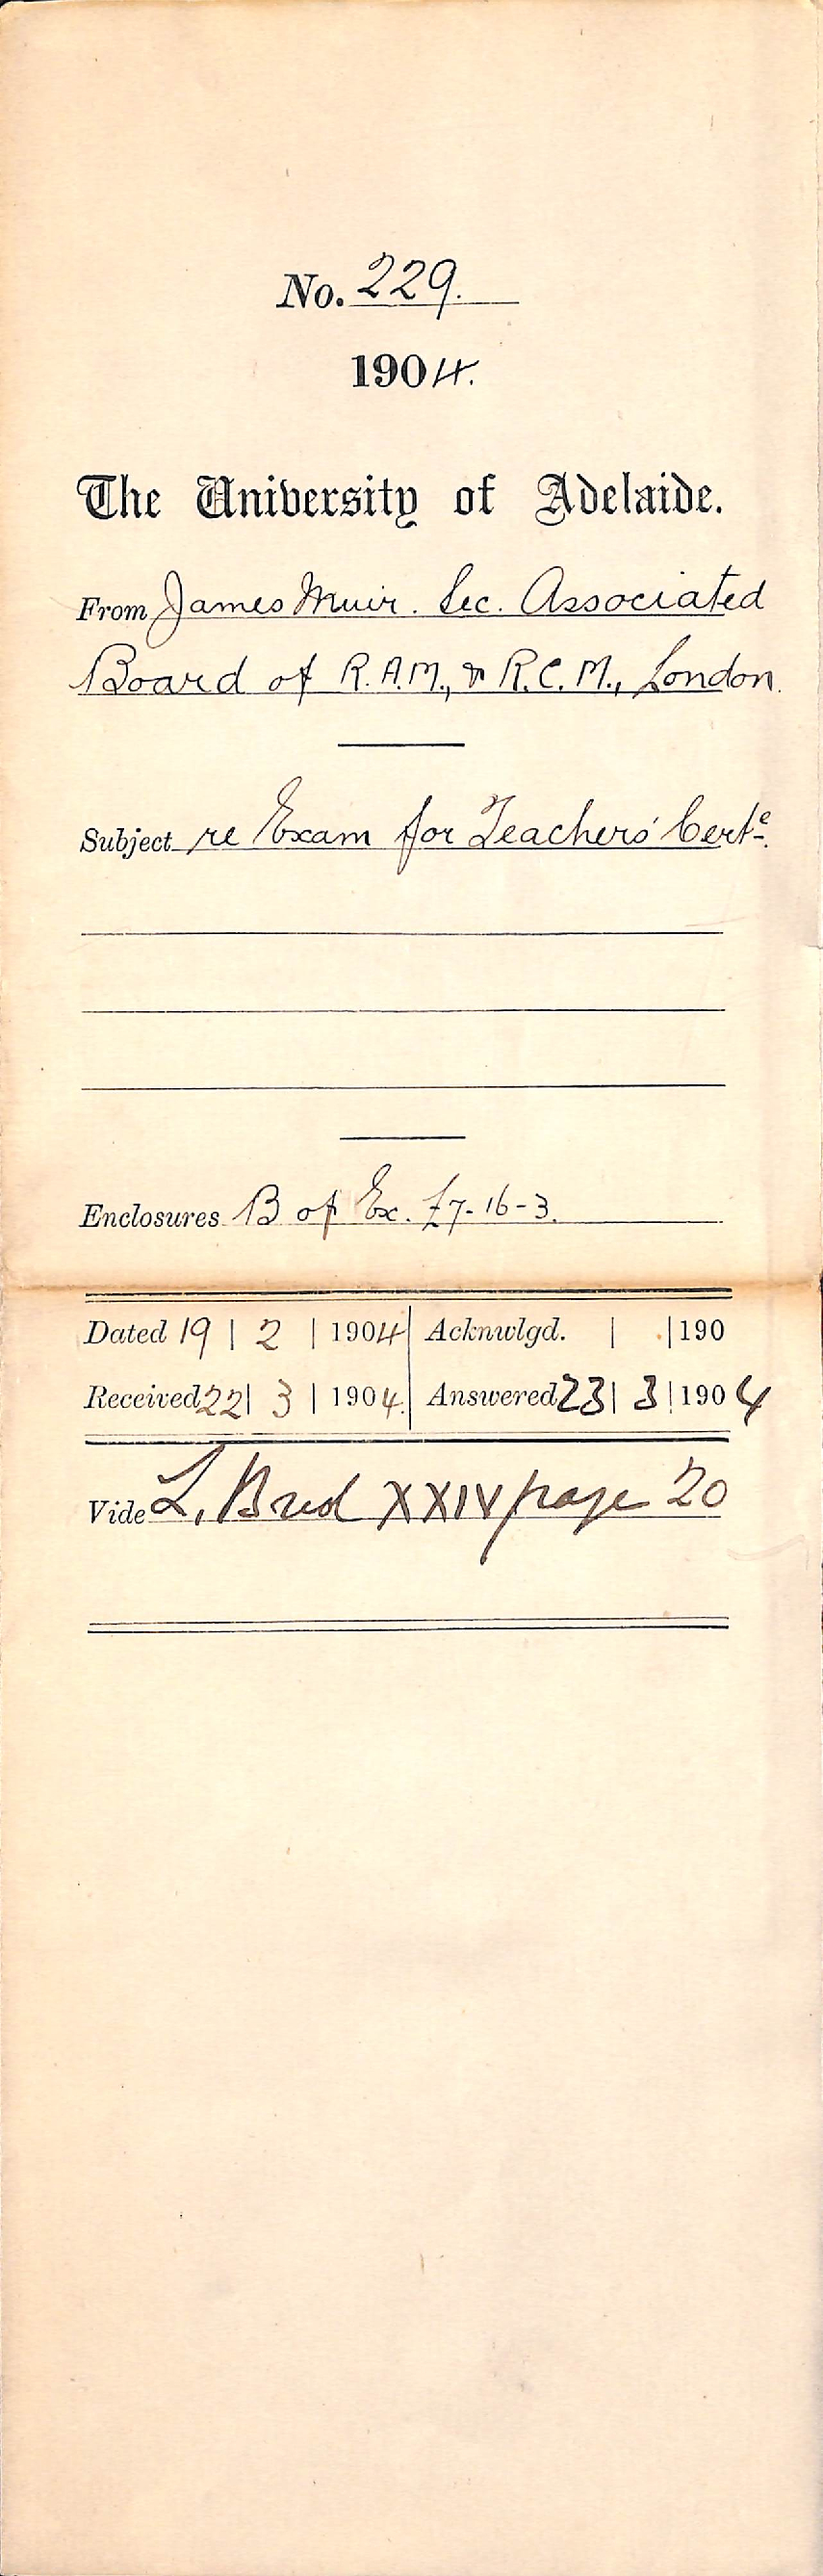 No. 229.
1904.
The University of Adelaide.
From James Muir. Sec. Associated
Board of R.A.M., & R.C.M., London.
Subject re Exam for Teachers' Certe.
Enclosures B of Ex. £7-16-3.
Dated 19 | 2 | 1904 Acknwlgd. | | 190
Received 22 | 3 | 1904. Answered 23 | 3 | 1904
Vide L. XXIV page 20